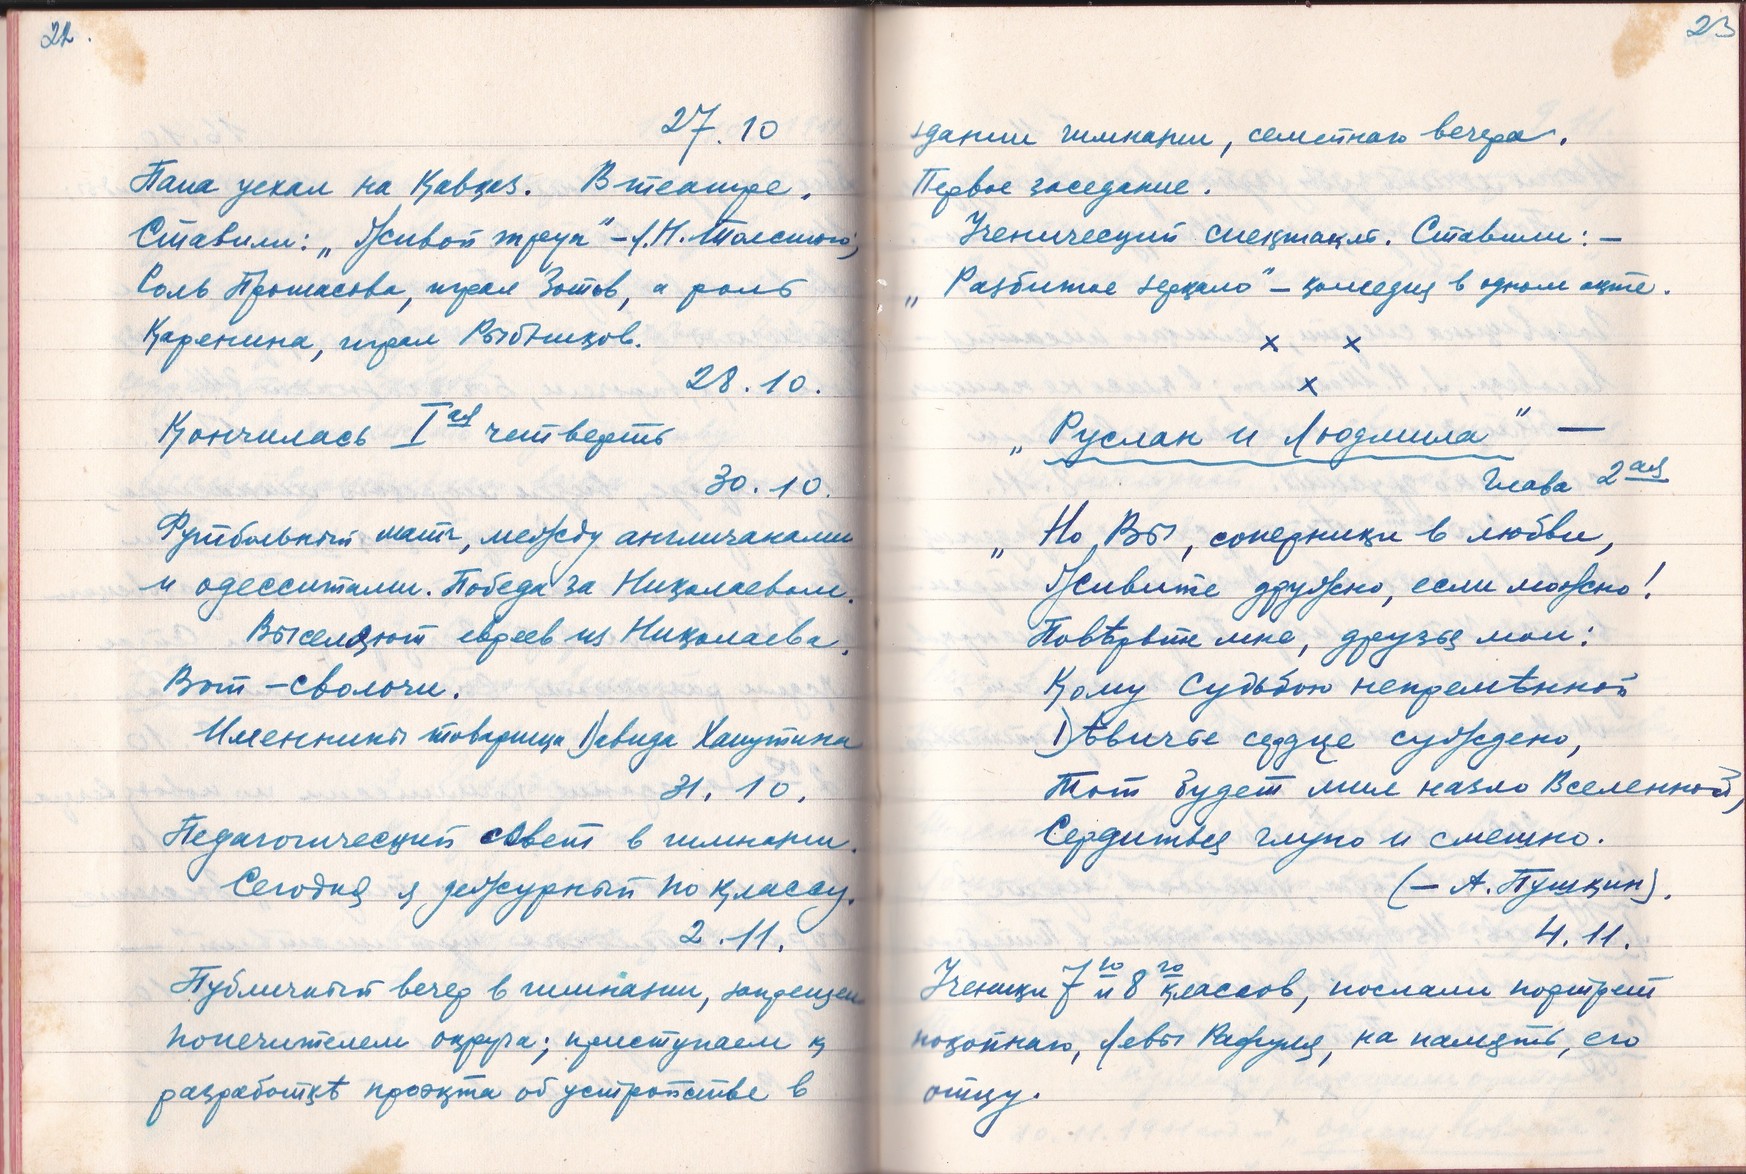 22.
27.10
Папа уехал на Кавказ. В театре.
Ставили: „Живой труп" – Л.Н. Толстого;
Роль Протасова, играл Зотов, а роль
Каренина, играл Рыбников.
28.10.
Кончилась Iая четверть
30.10.
Футбольный матч, между англичанами
и одесситами. Победа за Николаевом.
Выселяют евреев из Николаева.
Вот – сволочи.
Именины товарища Давида Хапутина
31.10.
Педагогический совет в гимназии.
Сегодня я дежурный по классу.
2.11.
Публичный вечер в гимназии, запрещен
попечителем округа; приступаем к
разработкѣ проэкта об устройстве в
23
здании гимназии, семейнаго вечера.
Первое заседание.
Ученический спектакль. Ставили: –
„Разбитое зеркало" – комедия в одном акте.
х х
х
„Руслан и Людмила" –
Глава 2ая
„Но, Вы, соперники в любви,
Живите дружно, если можно!
Повѣрьте мне, друзья мои:
Кому судьбою непремѣнной
Дѣвичье сердце суждено,
Тот будет мил назло Вселенной,
Сердиться глупо и смешно.
(– А. Пушкин).
4.11.
Ученики 7го и 8го классов, послали портрет
покойнаго, Левы, на память, его
отцу.